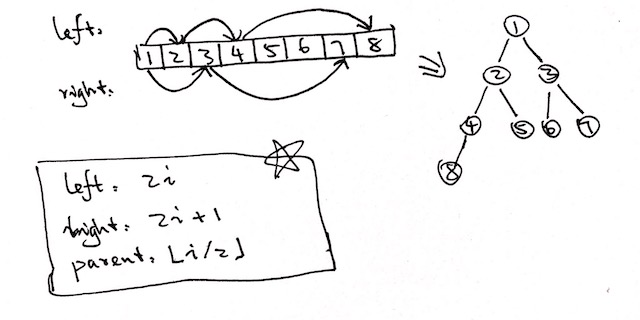 left:
1 2 3 4 5 6 7 8
right:
⇒
1
2 3
4 5 6 7
8
left: 2i
right: 2i+1
parent: ⌊i/2⌋